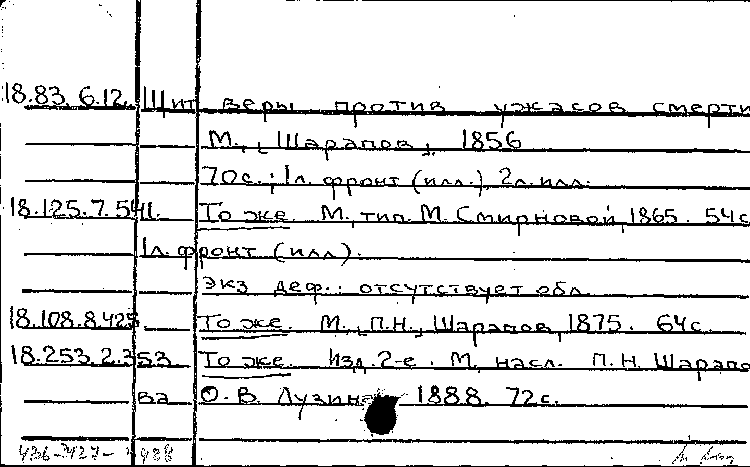 18.83.6.12. Щит веры против ужасов смерти
М., Шарапов, 1856
70с.; 1л. фронт (илл.), 2л. илл.
18.125.7.541. То же. М., тип. М. Смирновой, 1865. 54с
1л. фронт (илл).
экз деф.: отсутствует обл.
18.108.8.425. То же. М., П.Н., Шарапов, 1875. 64с.
18.253.2.353 То же. Изд. 2-е. М, насл. П.Н. Шарапо
ва О.В. Лузина 1888. 72с.